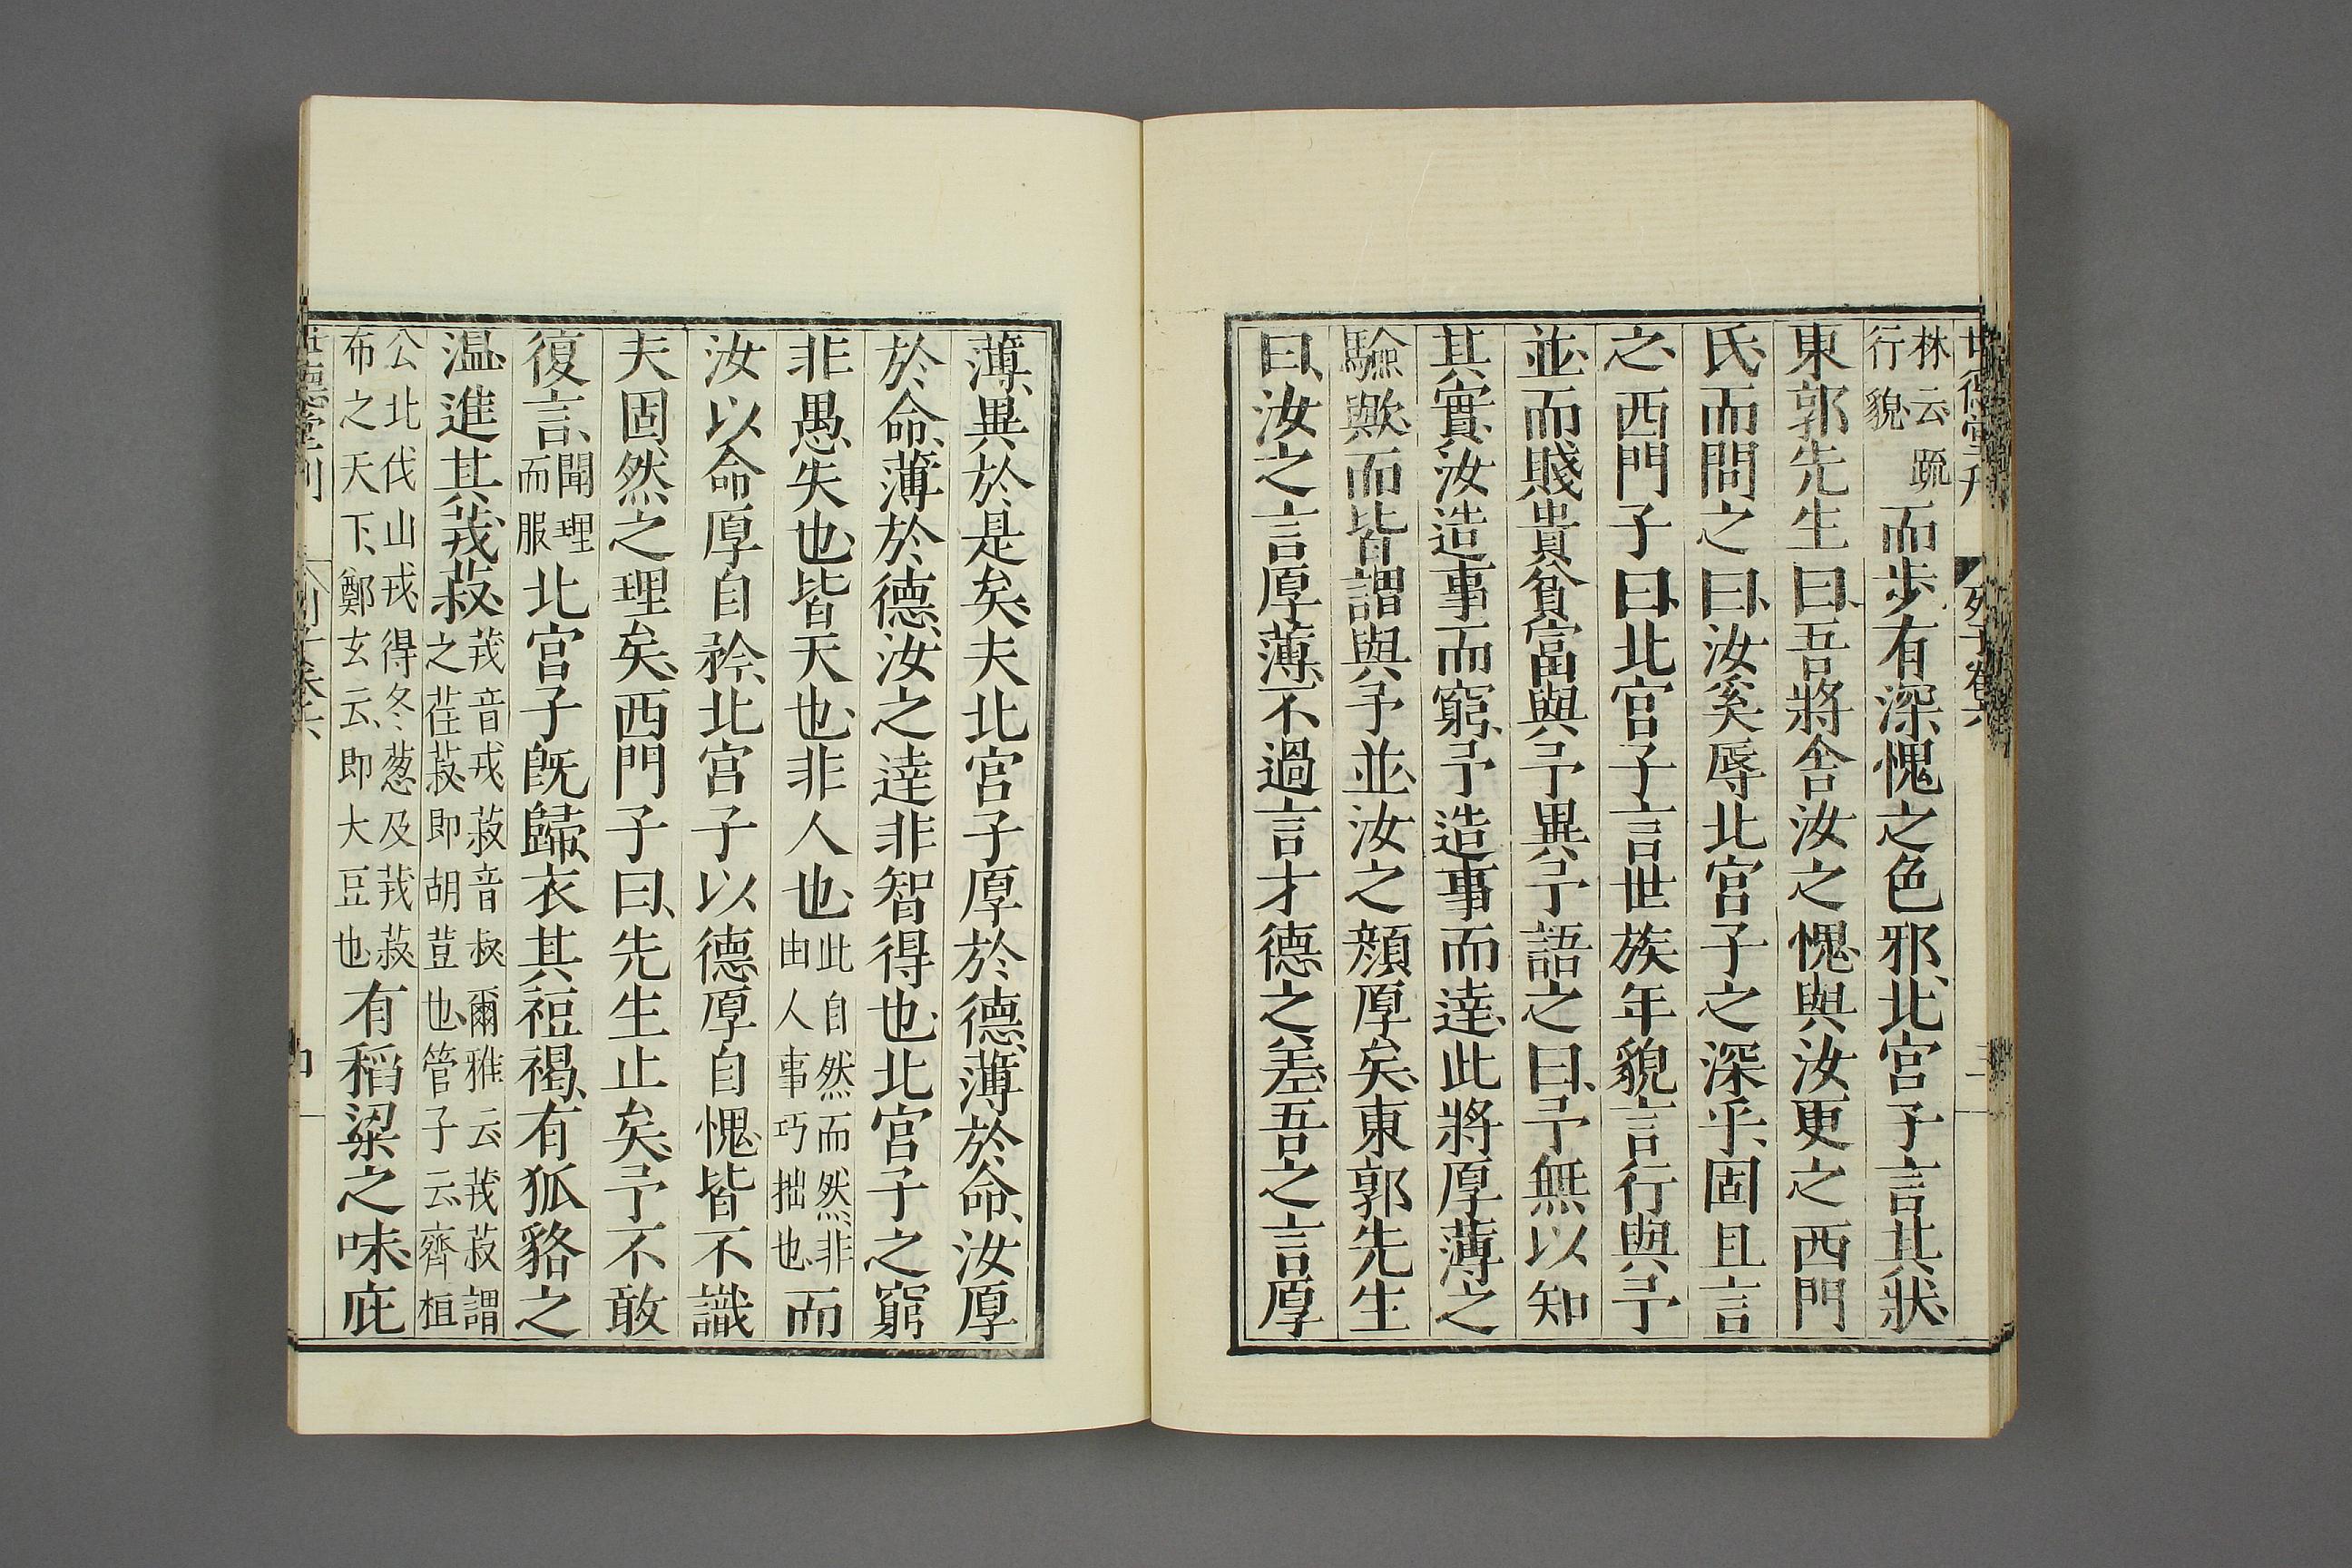 林云疏行貌而步有深愧之色邪北宮子言其狀
東郭先生曰吾將舍汝之愧與汝更之西門
氏而問之曰汝奚辱北宮子之深乎固且言
之西門子曰北宮子言世族年貌言行與予
並而賤貴貧富與予異予語之曰予無以知
其實汝造事而窮予造事而達此將厚薄之
驗歟而皆謂與予並汝之顏厚矣東郭先生
曰汝之言厚薄不過言才德之差吾之言厚
薄異於是矣夫北宮子厚於德薄於命汝厚
於命薄於德汝之達非智得也北宮子之窮
非愚失也皆天也非人也此自然而然非由人事巧拙也而
汝以命厚自矜北宮子以德厚自愧皆不識
夫固然之理矣西門子曰先生止矣予不敢
復言聞理而服北宮子既歸衣其裋褐有狐貉之
温進其茙菽茙音戎菽音叔爾雅云茙菽謂之荏菽即胡荳也管子云齊桓
公北伐山戎得冬葱及茙菽布之天下鄭玄云即大豆也有稻粱之味庇